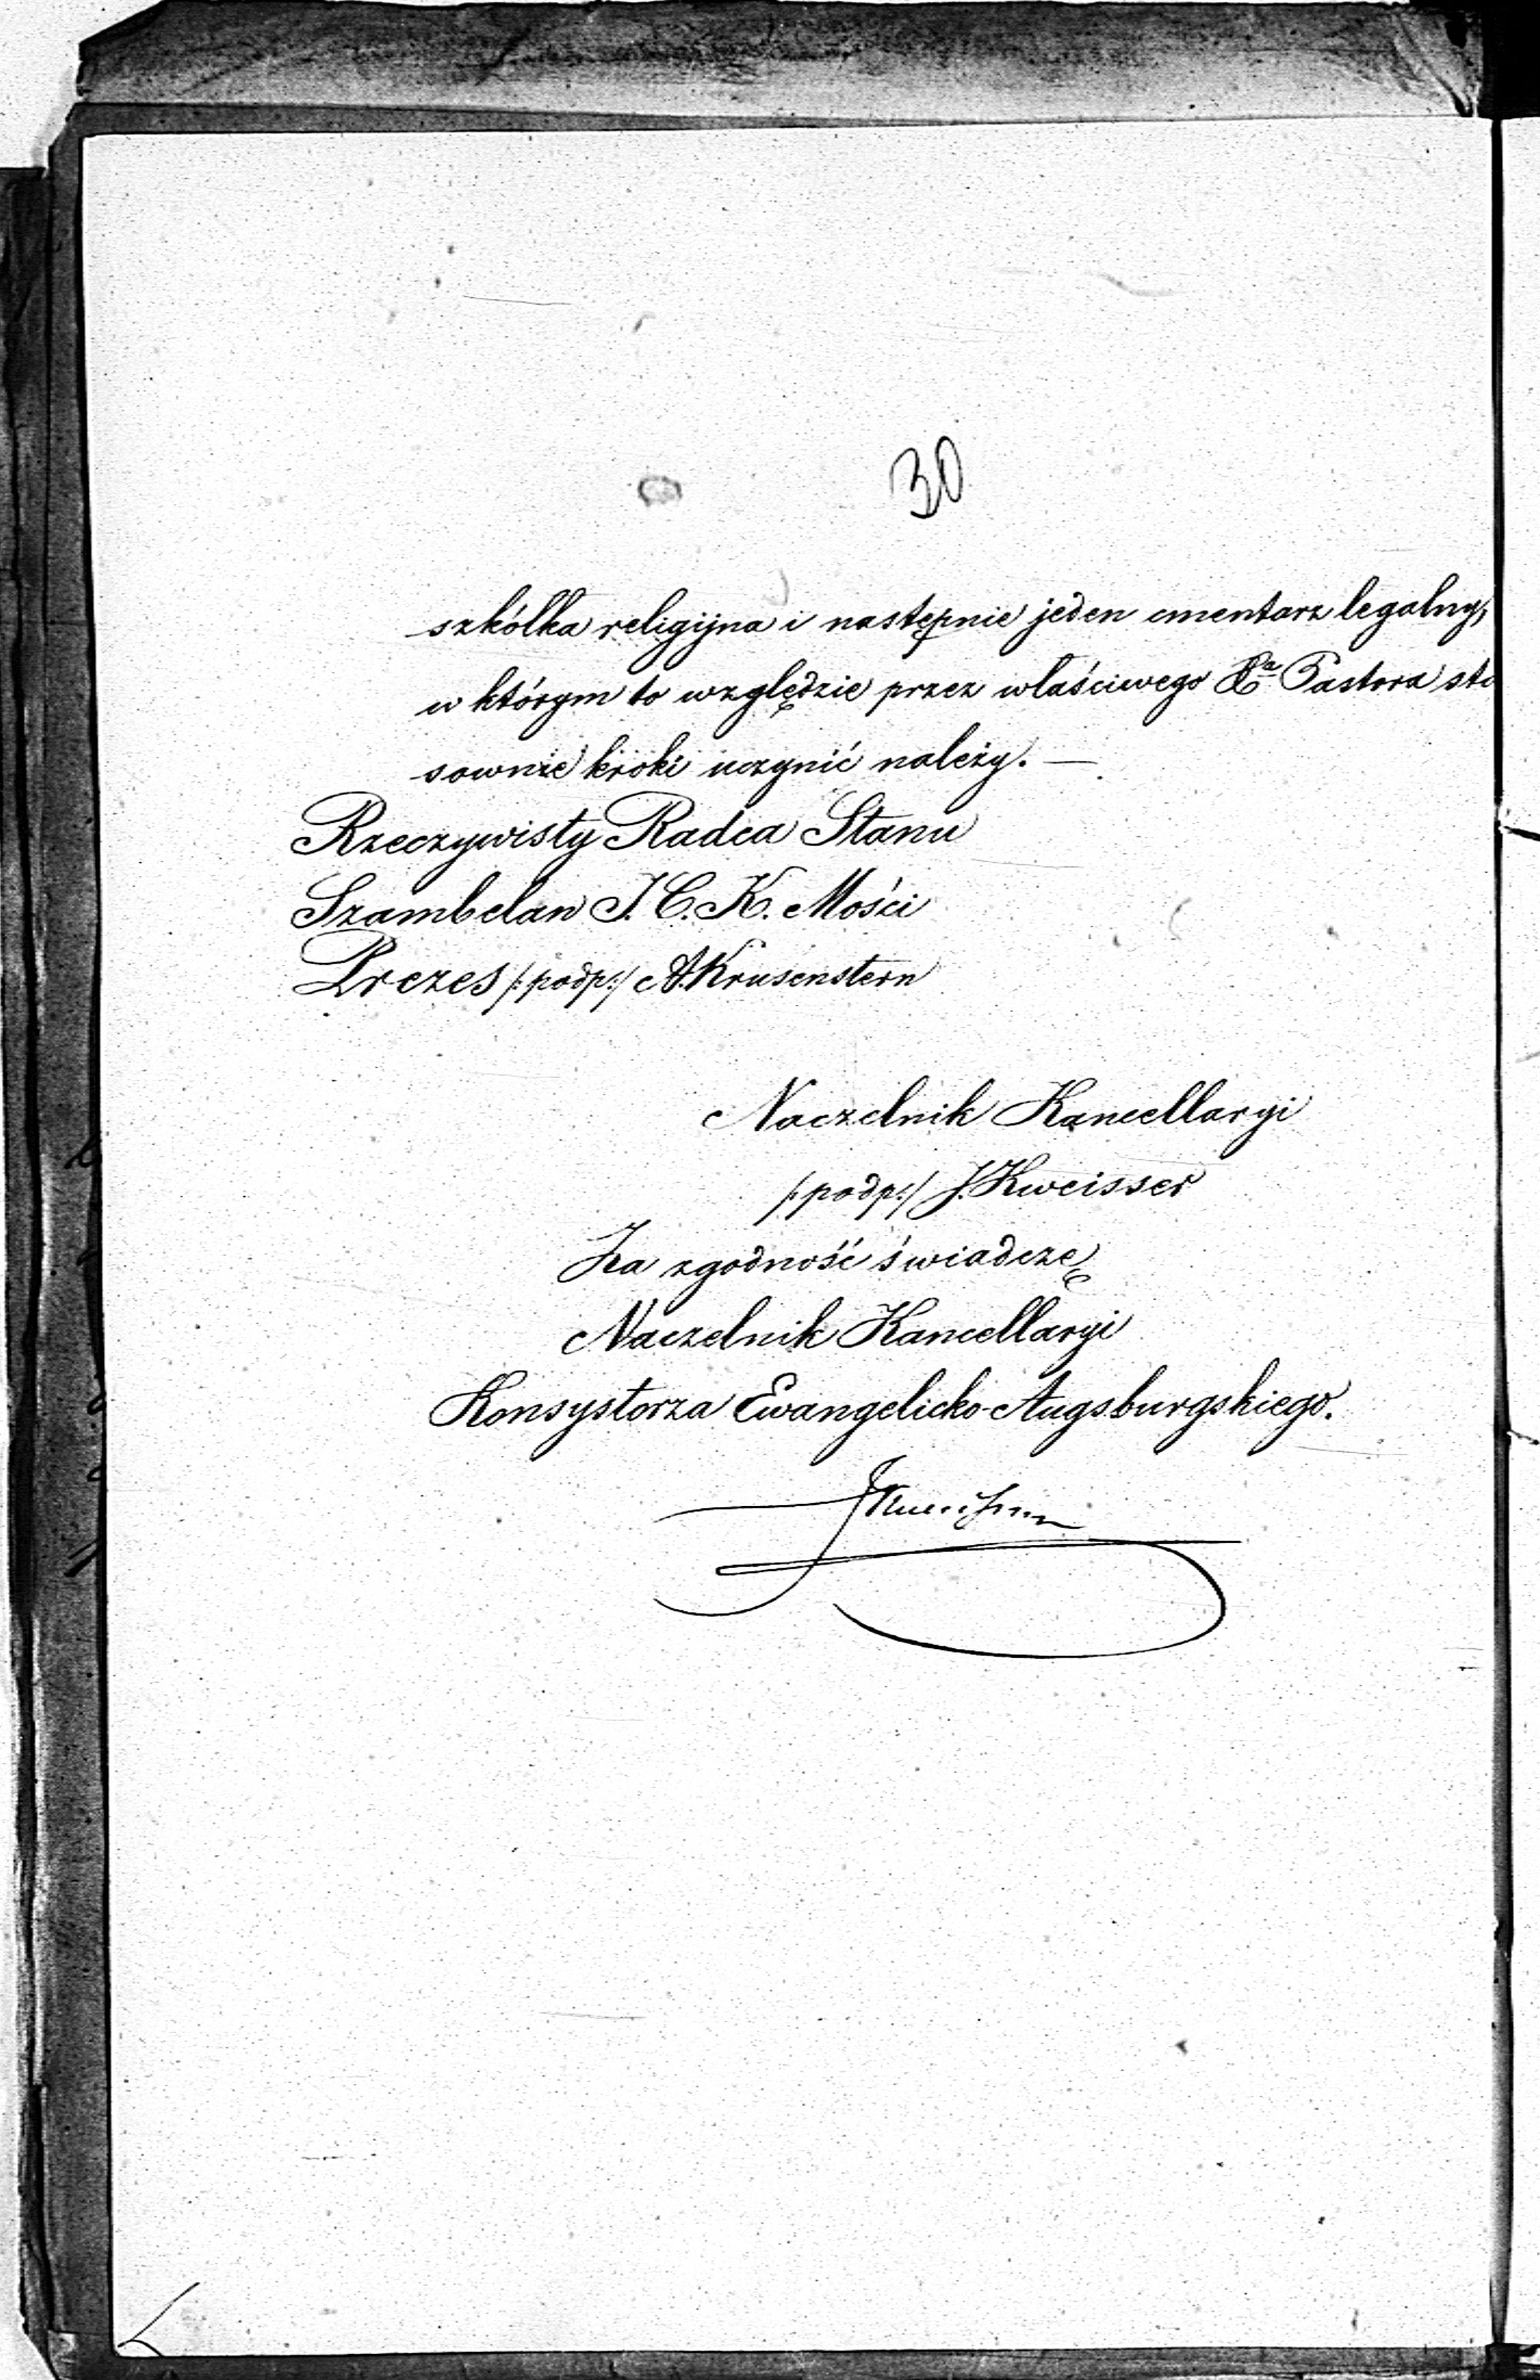 30
szkólka religijna i następnie jeden cmentarz legalny,
w którym to względzie przez właściwego Xa Pastora sto
sownie kroki uczynić należy. —
Rzeczywisty Radca Stanu
Szambelan J. C. K. Mości
Prezes /:podp:/ A. Krusenstern
Naczelnik Kancellaryi
/:podp:/ J. Kweisser
Za zgodność świadczę
Naczelnik Kancellaryi
Konsystorza Ewangelicko-Augsburgskiego.